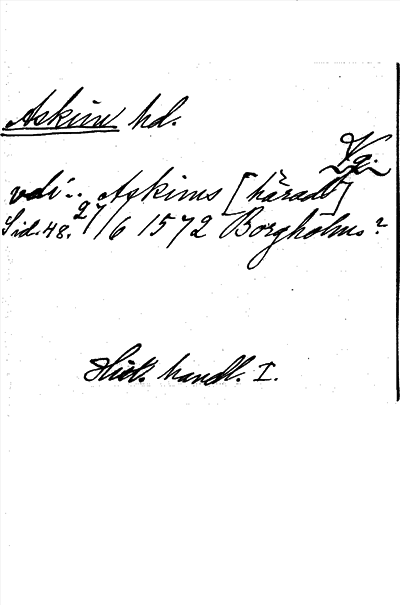 Askim hd.
Vg.
vdi:. Askims [härad]
Sid. 48. 27/6 1572 Borgholms?
Hist. handl. I.